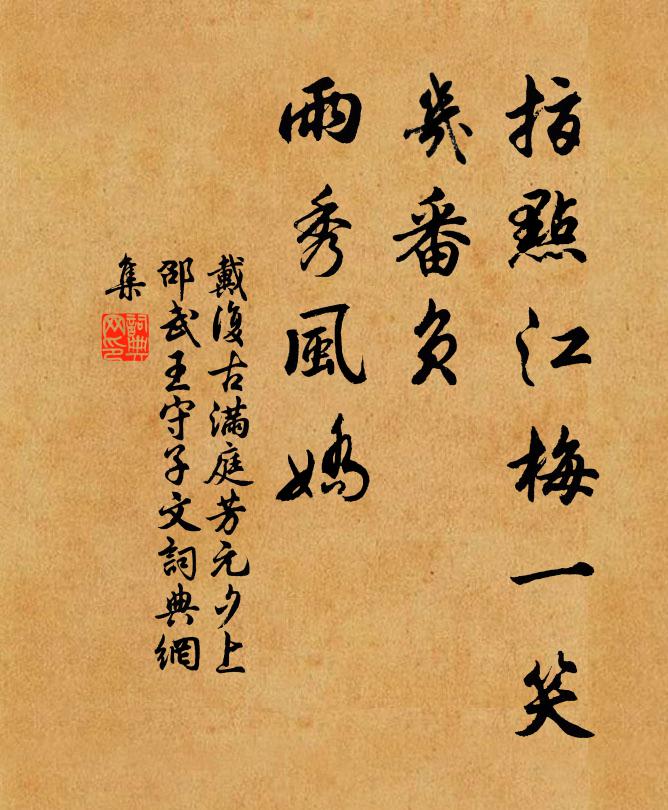 指點江梅一笑
幾番負
雨秀風嬌
戴復古滿庭芳元夕上
邵武王守子文詞典網
集
詞典
网印